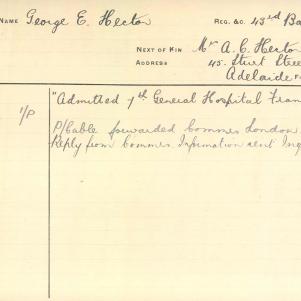 NAME George E. Hecton REG. &C. 43rd Ba
NEXT OF KIN Mr A. C. Hecton
ADDRESS 45. Sturt Stree
Adelaide
"Admitted 7th General Hospital Fran
1/P P/Cable forwarded Commrs London
Reply from Commrs. Information sent Inq